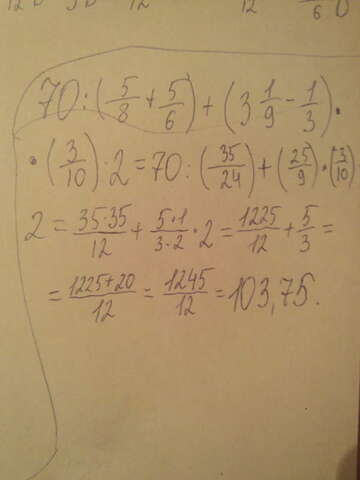 12 0
12
12
6
70:(5/8+5/6)+(3 1/9-1/3)·
·(3/10)·2=70:(35/24)+(25/9)·(3/10)
2=35·35/12+5·1/3·2·2=1225/12+5/3=
=1225+20/12=1245/12=103,75.